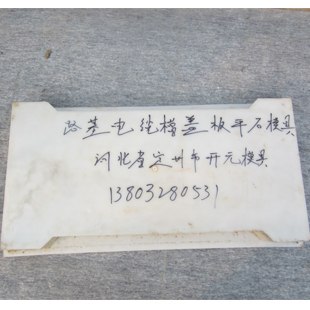 路基电缆槽盖板平石模具
河北省定州市开元模具
13803280531